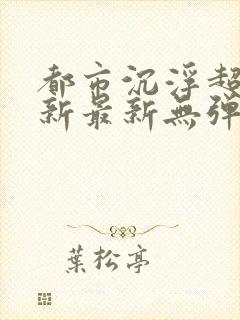 都市沉浮超
新最新無彈
葉松亭